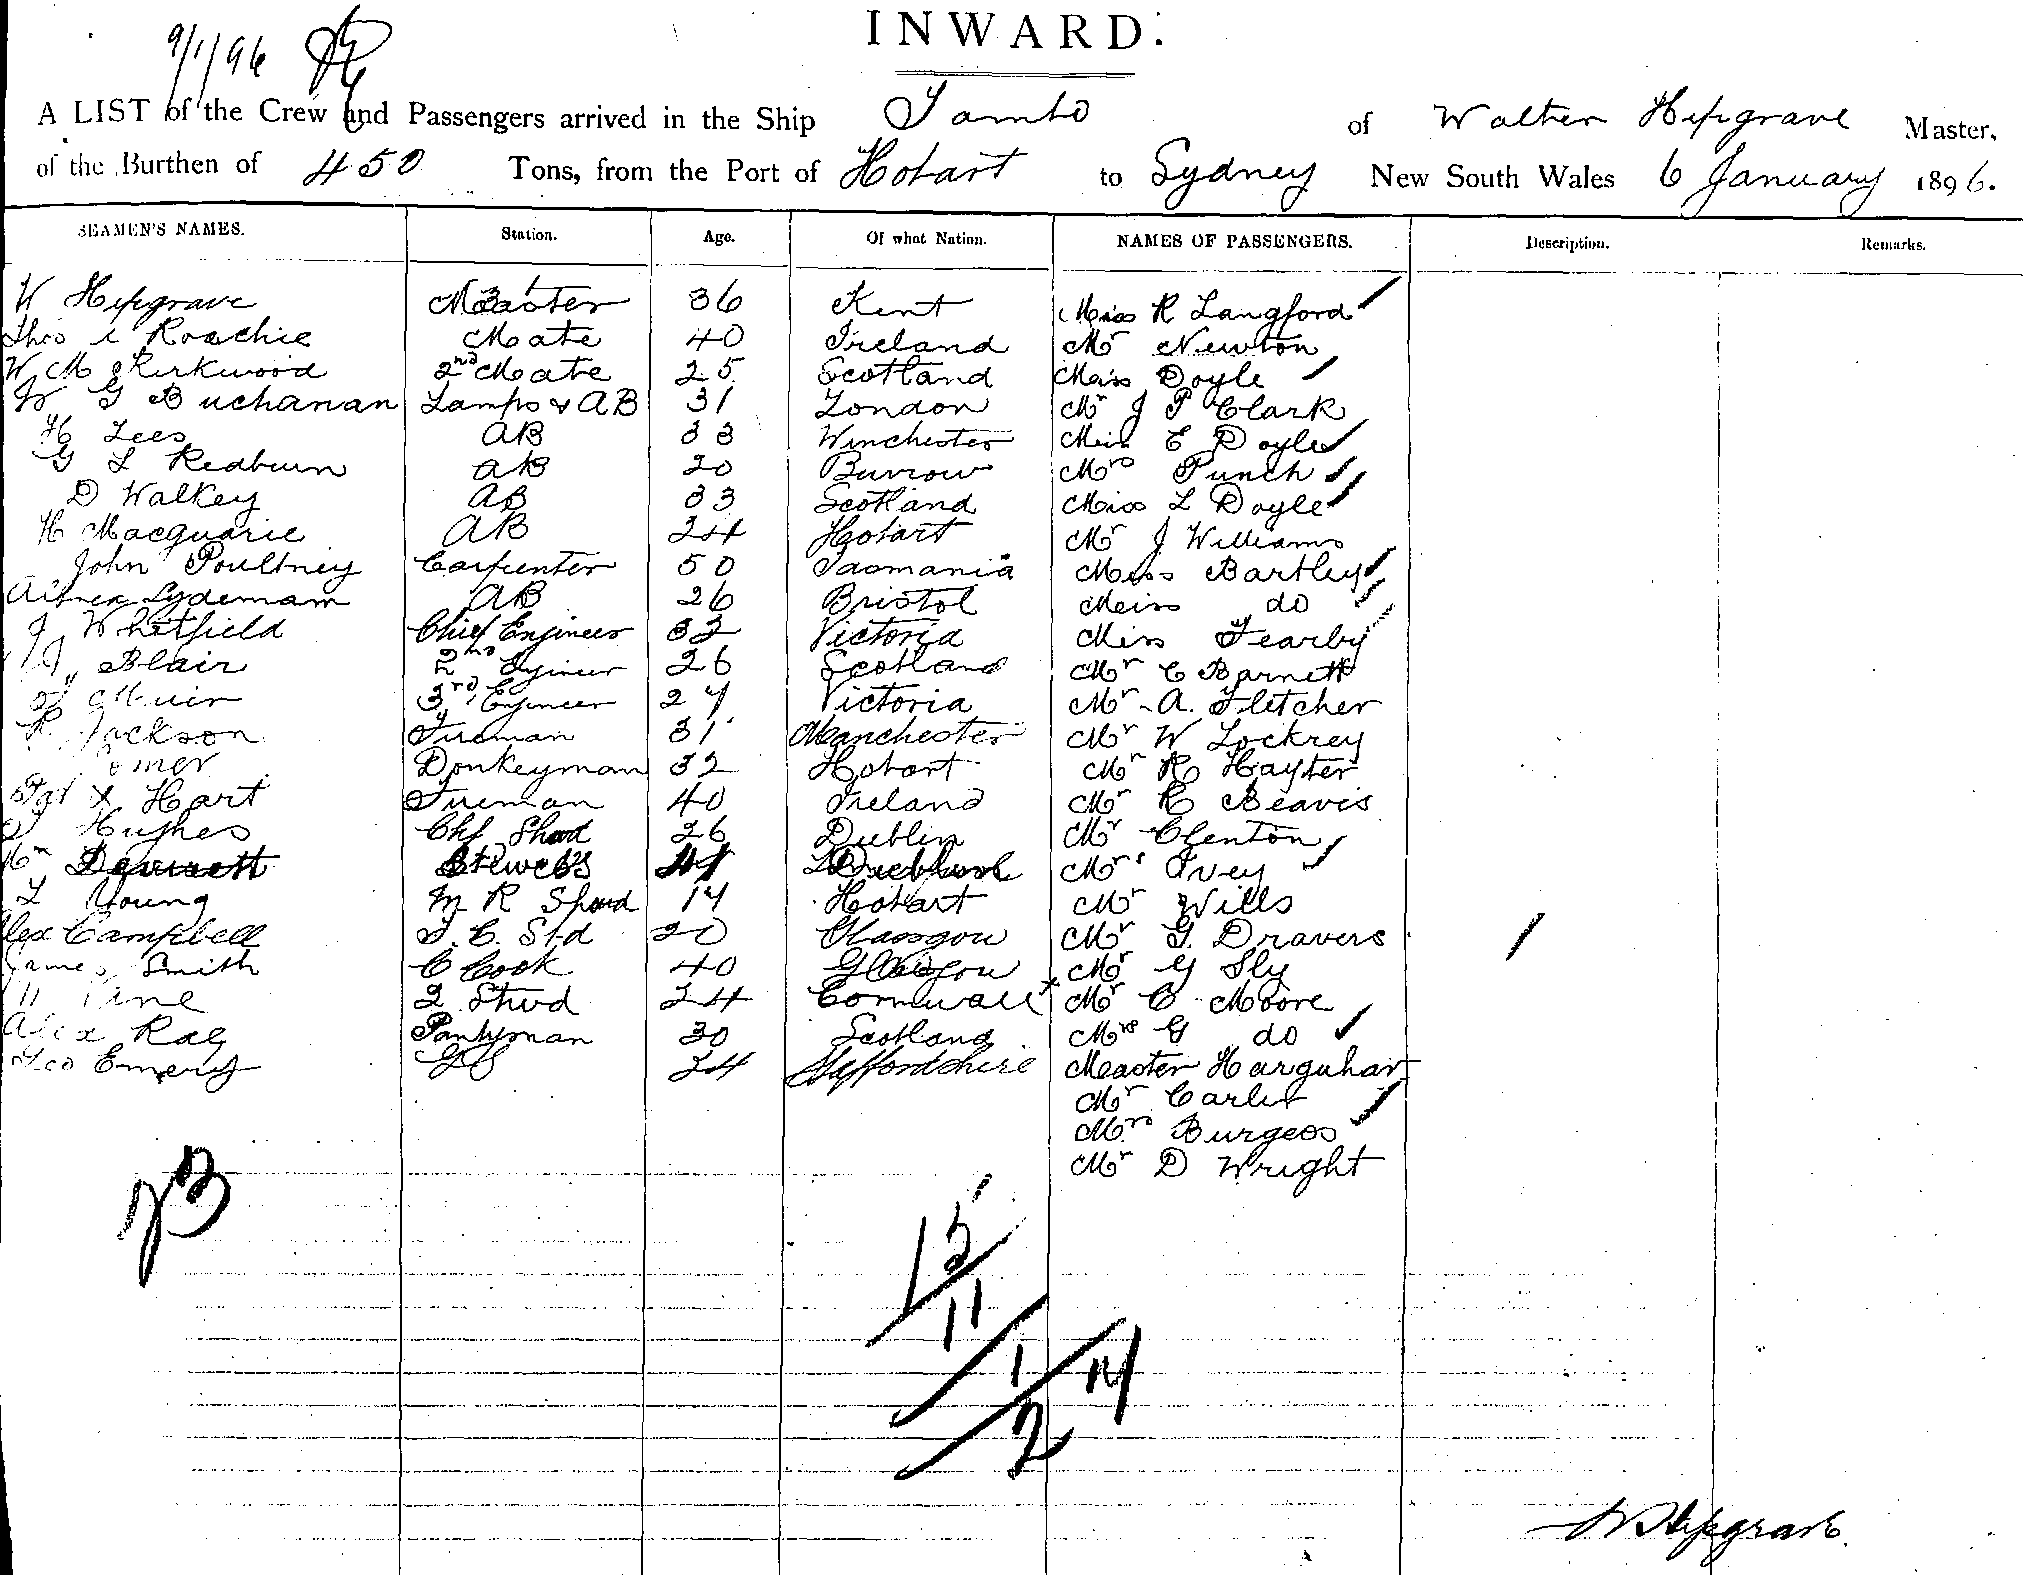 INWARD.
9/1/96
A LIST of the Crew and Passengers arrived in the Ship Tambo of Walter Hipgrave Master,
of the Burthen of 450 Tons, from the Port of Hobart to Sydney New South Wales 6 January 1896.
SEAMEN'S NAMES. Station. Age. Of what Nation. NAMES OF PASSENGERS. Description. Remarks.
W Hipgrave Master 36 Kent Miss R Langford
Thos Roachie Mate 40 Ireland Mr Newton
W M Kirkwood 2nd Mate 25 Scotland Miss Doyle
W G Buchanan Lamps & AB 31 London Mr J P Clark
H Lees AB 33 Winchester Miss E Doyle
G L Redburn AB 20 Burrow Mrs Punch
D Walkey AB 33 Scotland Miss L Doyle
H Macquarie AB 24 Hobart Mr J Williams
John Poultney Carpenter 50 Tasmania Miss Bartley
Lydemam AB 26 Bristol Miss do
J Whitfield Chief Engineer 32 Victoria Miss Fearby
Blair 2nd Engineer 26 Scotland Mr C Barnett
Muir 3rd Engineer 27 Victoria Mr A. Fletcher
R Jackson Fireman 31 Manchester Mr W Lockrey
Donkeyman 32 Hobart Mr R Hayter
Pat Hart Fireman 40 Ireland Mr R Beavis
Hughes Chf Stwd 26 Dublin Mr Clenton
Stewess Mrs Ivey
L Young M R Stwd 17 Hobart Mr Wills
Campbell Std 20 Glasgow Mr G. Dravers
James Smith C Cook 40 Glasgow Mr G Sly
2 Stwd 24 Cornwall Mr C Moore
Alex Rae Pantryman 30 Scotland Mrs G do
Geo Emery GS 24 Staffordshire Master Harquhar
Mr Carler
Mrs Burgess
Mr D Wright
13
11
1 14
2
W Hipgrave